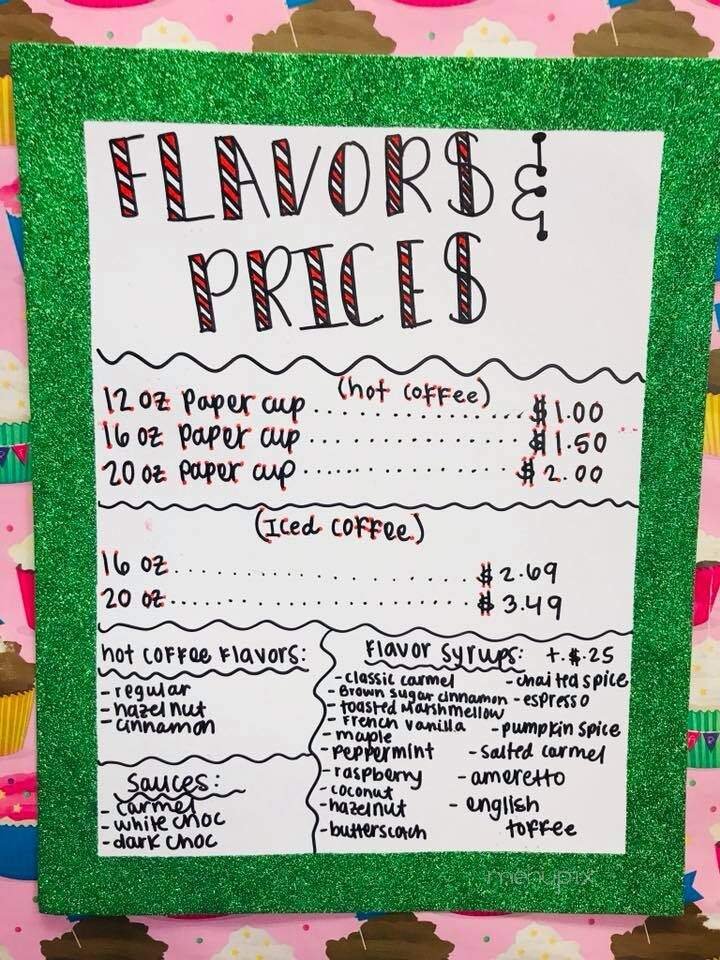 FLAVORS &
PRICES
(hot coffee)
12 oz paper cup .................. $1.00
16 oz paper cup .................. $1.50
20 oz paper cup .................. $2.00
(Iced coffee)
16 oz .......................... $2.69
20 oz .......................... $3.49
hot coffee flavors:
- regular
- hazelnut
- cinnamon
Sauces:
- carmel
- white choc
- dark choc
Flavor Syrups: +.$.25
- classic carmel
- Brown sugar cinnamon
- toasted Marshmellow
- French vanilla
- maple
- peppermint
- raspberry
- coconut
- hazelnut
- butterscotch
- chai tea spice
- espresso
- pumpkin spice
- salted carmel
- ameretto
- english
toffee
menupix